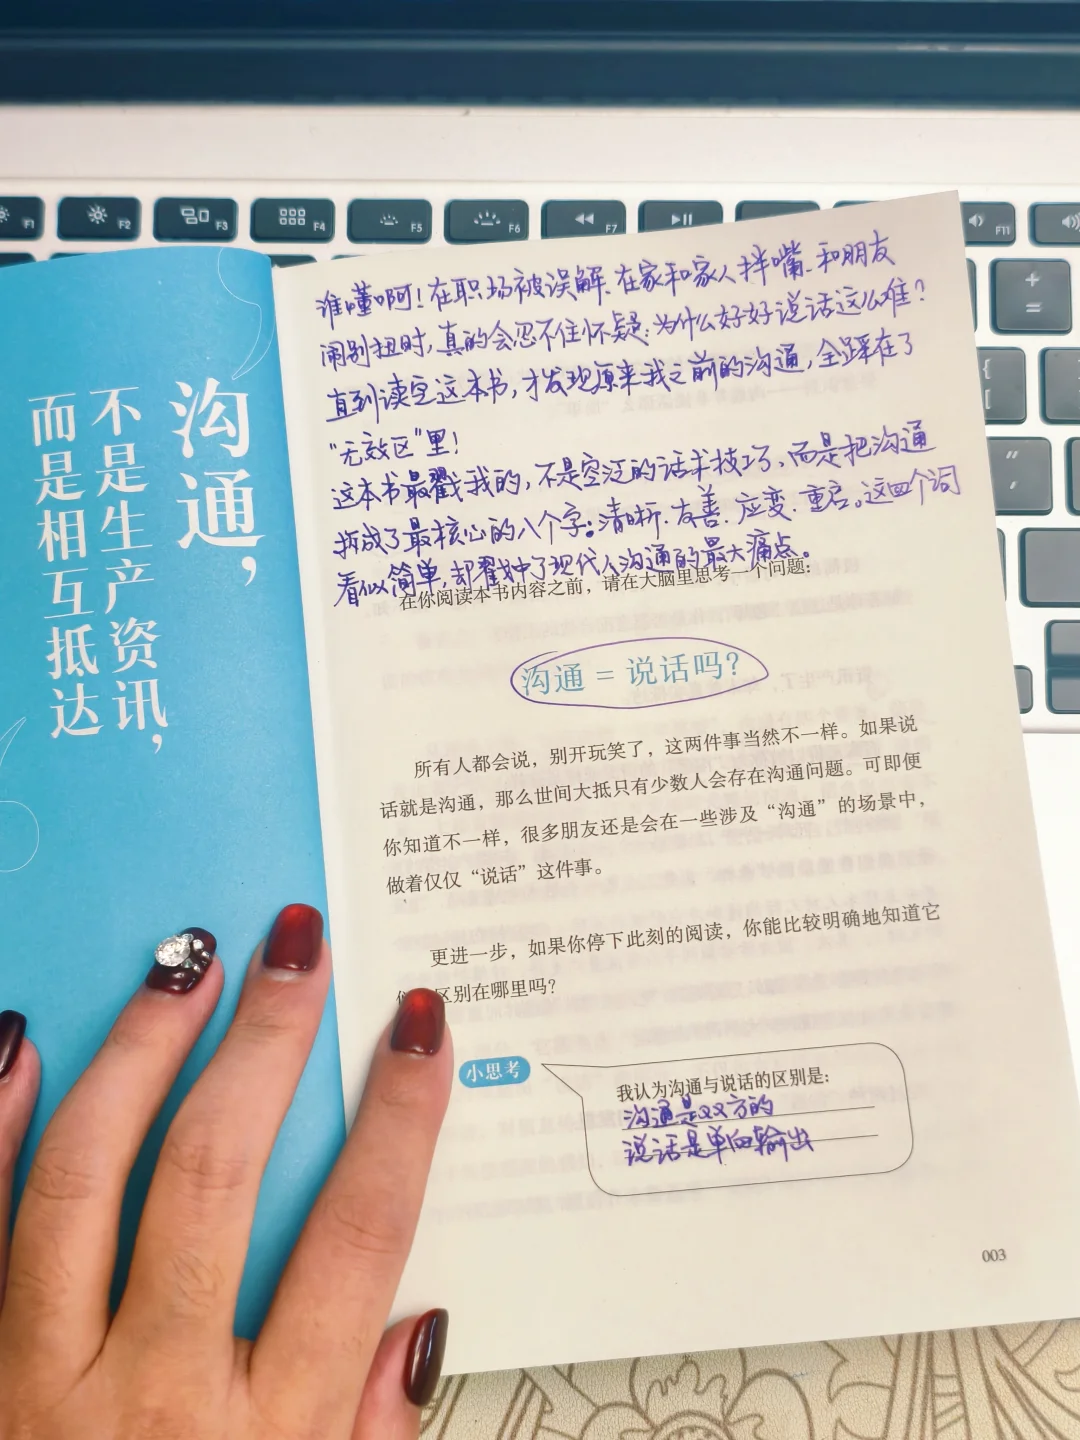 沟通，
不是生产资讯，
而是相互抵达
谁懂啊！在职场被误解、在家和家人拌嘴、和朋友
闹别扭时，真的会忍不住怀疑：为什么好好说话这么难？
直到读完这本书，才发现原来我之前的沟通，全踩在了
“无效区”里！
这本书最戳我的，不是空泛的话术技巧，而是把沟通
拆成了最核心的八个字：清晰、友善、应变、重启。这四个词
看似简单，却戳中了现代人沟通的最大痛点。
在你阅读本书内容之前，请在大脑里思考一个问题：
沟通 = 说话吗？
所有人都会说，别开玩笑了，这两件事当然不一样。如果说
话就是沟通，那么世间大抵只有少数人会存在沟通问题。可即便
你知道不一样，很多朋友还是会在一些涉及“沟通”的场景中，
做着仅仅“说话”这件事。
更进一步，如果你停下此刻的阅读，你能比较明确地知道它
区别在哪里吗？
小思考
我认为沟通与说话的区别是：
沟通是双方的
说话是单向输出
003
F1
F2
F3
F4
F5
F6
F7
F11
+
=
{
[
"
'